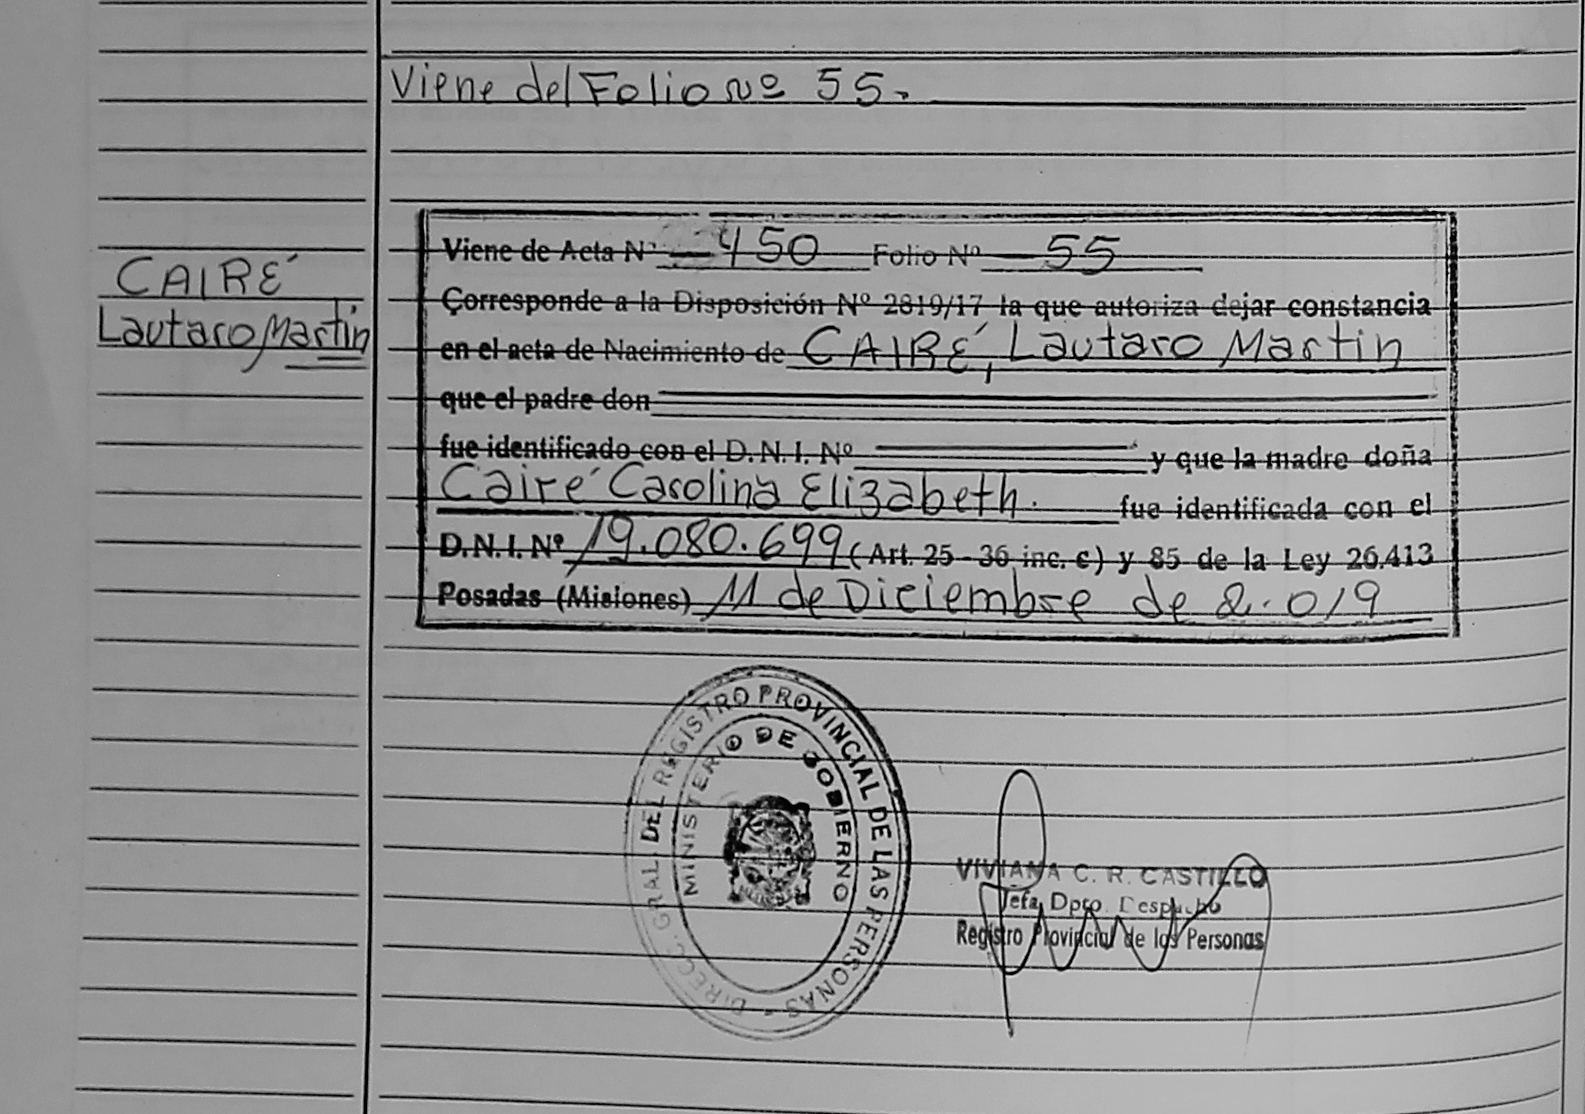 Viene del Folio nº 55.
CAIRÉ
Lautaro Martin
Viene de Acta Nº 450 Folio Nº 55
Corresponde a la Disposición Nº 2819/17 la que autoriza dejar constancia
en el acta de Nacimiento de CAIRÉ, Lautaro Martin
que el padre don
fue identificado con el D. N. I. Nº y que la madre doña
Cairé Carolina Elizabeth. fue identificada con el
D.N.I. Nº 19.080.699 (Art. 25 - 36 inc. c) y 85 de la Ley 26.413
Posadas (Misiones) 11 de Diciembre de 2.019
DIRECC. GRAL. DEL REGISTRO PROVINCIAL DE LAS PERSONAS -
MINISTERIO DE GOBIERNO
VIVIANA C. R. CASTILLO
Jefa Dpto. Despacho
Registro Provincial de las Personas